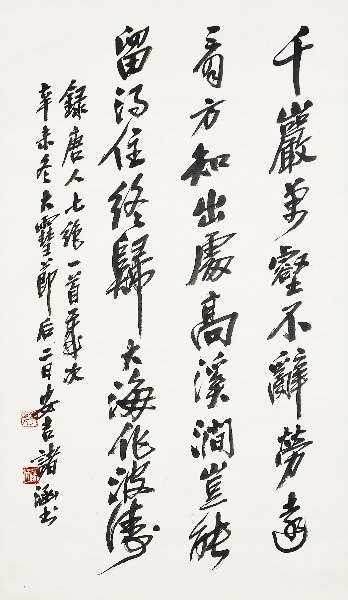 千巖萬壑不辭勞遠
看方知出處高溪澗豈能
留得住終歸大海作波濤
錄唐人七絕一首歲次
辛未冬大雪節后二日安吉諸涵书